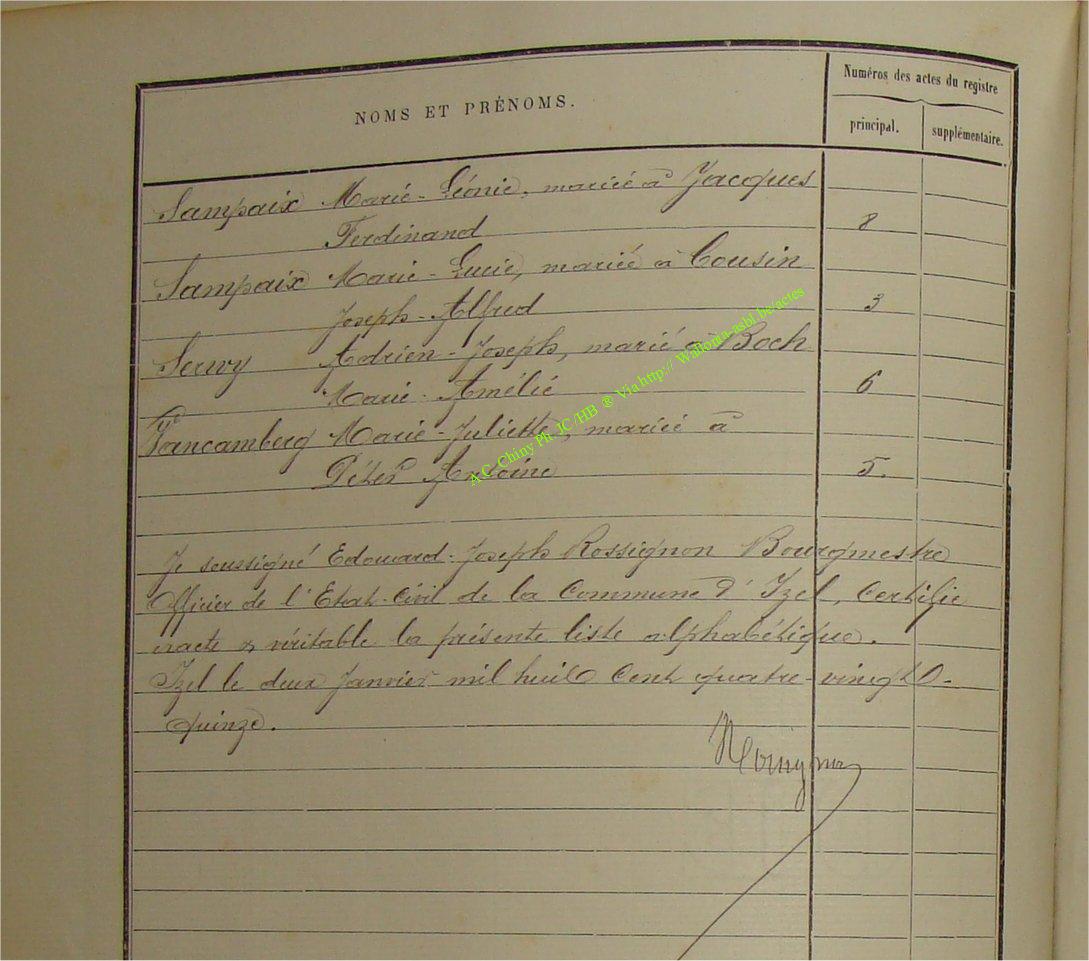 NOMS ET PRÉNOMS.
Numéros des actes du registre
principal.
supplémentaire.
Sampaix Marie-Léonie, mariée à Jacques
Ferdinand 8
Sampaix Marie-Lucie, mariée à Cousin
Joseph-Alfred 3
Serwy Adrien-Joseph, marié à Boch
Marie-Amélie 6
Vancamberg Marie-Juliette, mariée à
Péter Antoine 5.
Je soussigné Edouard-Joseph Rossignon Bourgmestre
Officier de l'Etat-Civil de la Commune d'Izel, Certifie
exacte & véritable la présente liste alphabétique.
Izel le deux Janvier mil huit Cent quatre-vingt-
quinze.
A.C. Chiny Ph. JC/HB ® Via http:// Wallonia-asbl.be/actes